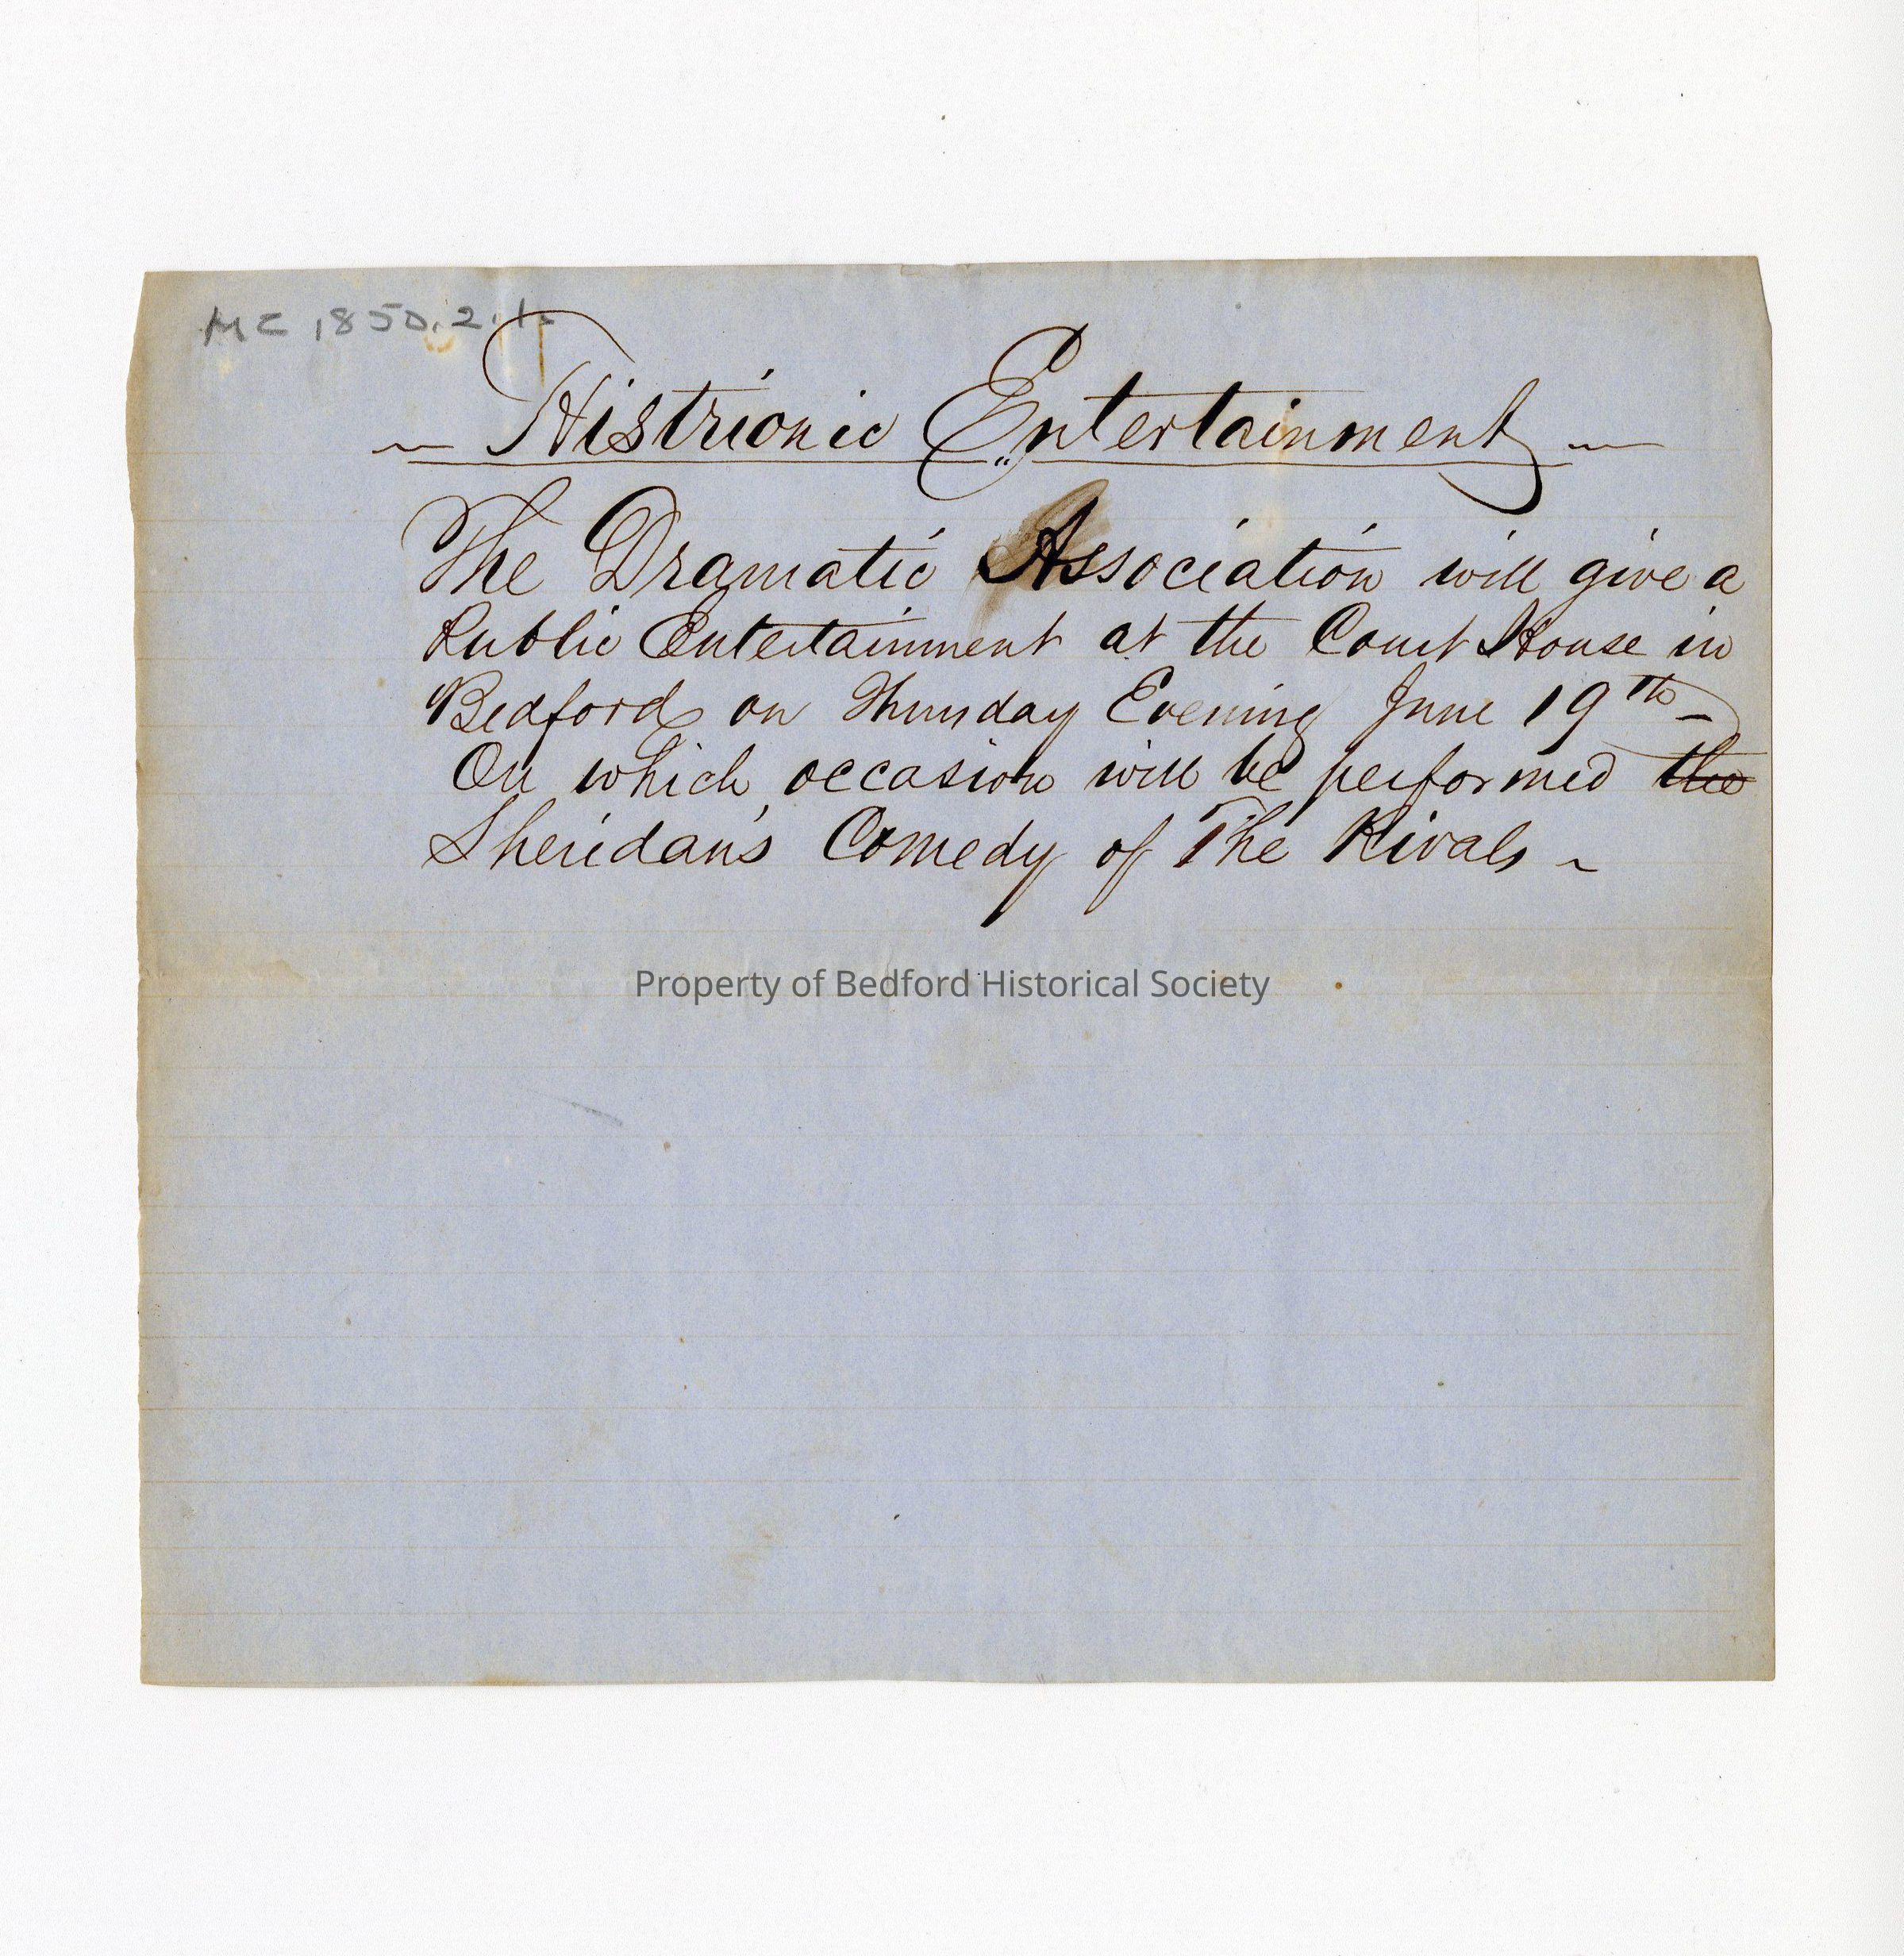 MC 1850.2.1.
~ Histrionic Entertainment ~
The Dramatic Association will give a
Public Entertainment at the Court House in
Bedford on Thursday Evening June 19th -
On which occasion will be performed the
Sheridan's Comedy of The Rivals ~
Property of Bedford Historical Society